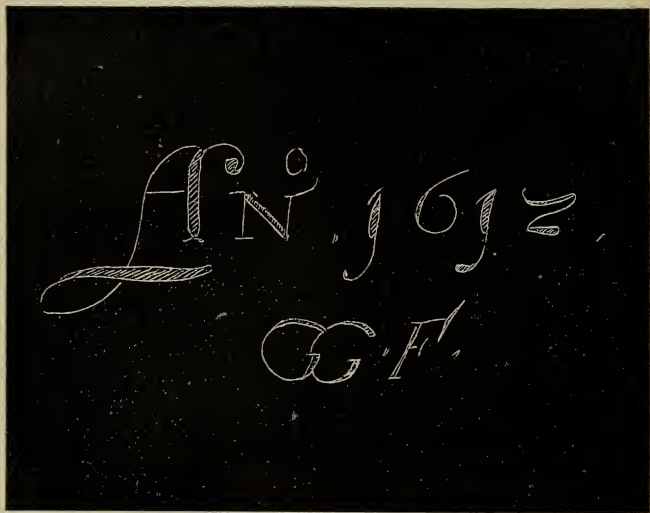 AN° . 1612 .
GG . F .